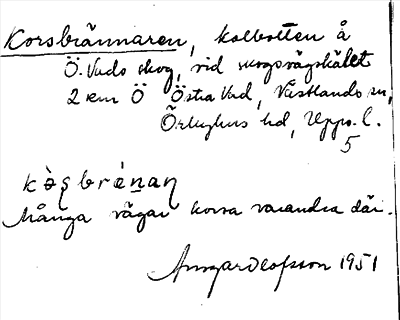 Korsbrännaren, kolbotten å
Ö. Vads skog, vid skogsvägskälet
2 km Ö Östra Vad, Västlands sn,
Örbyhus hd, Upps. l.
5
Många vägar korsa varandra där.
Ansgar Olofsson 1951